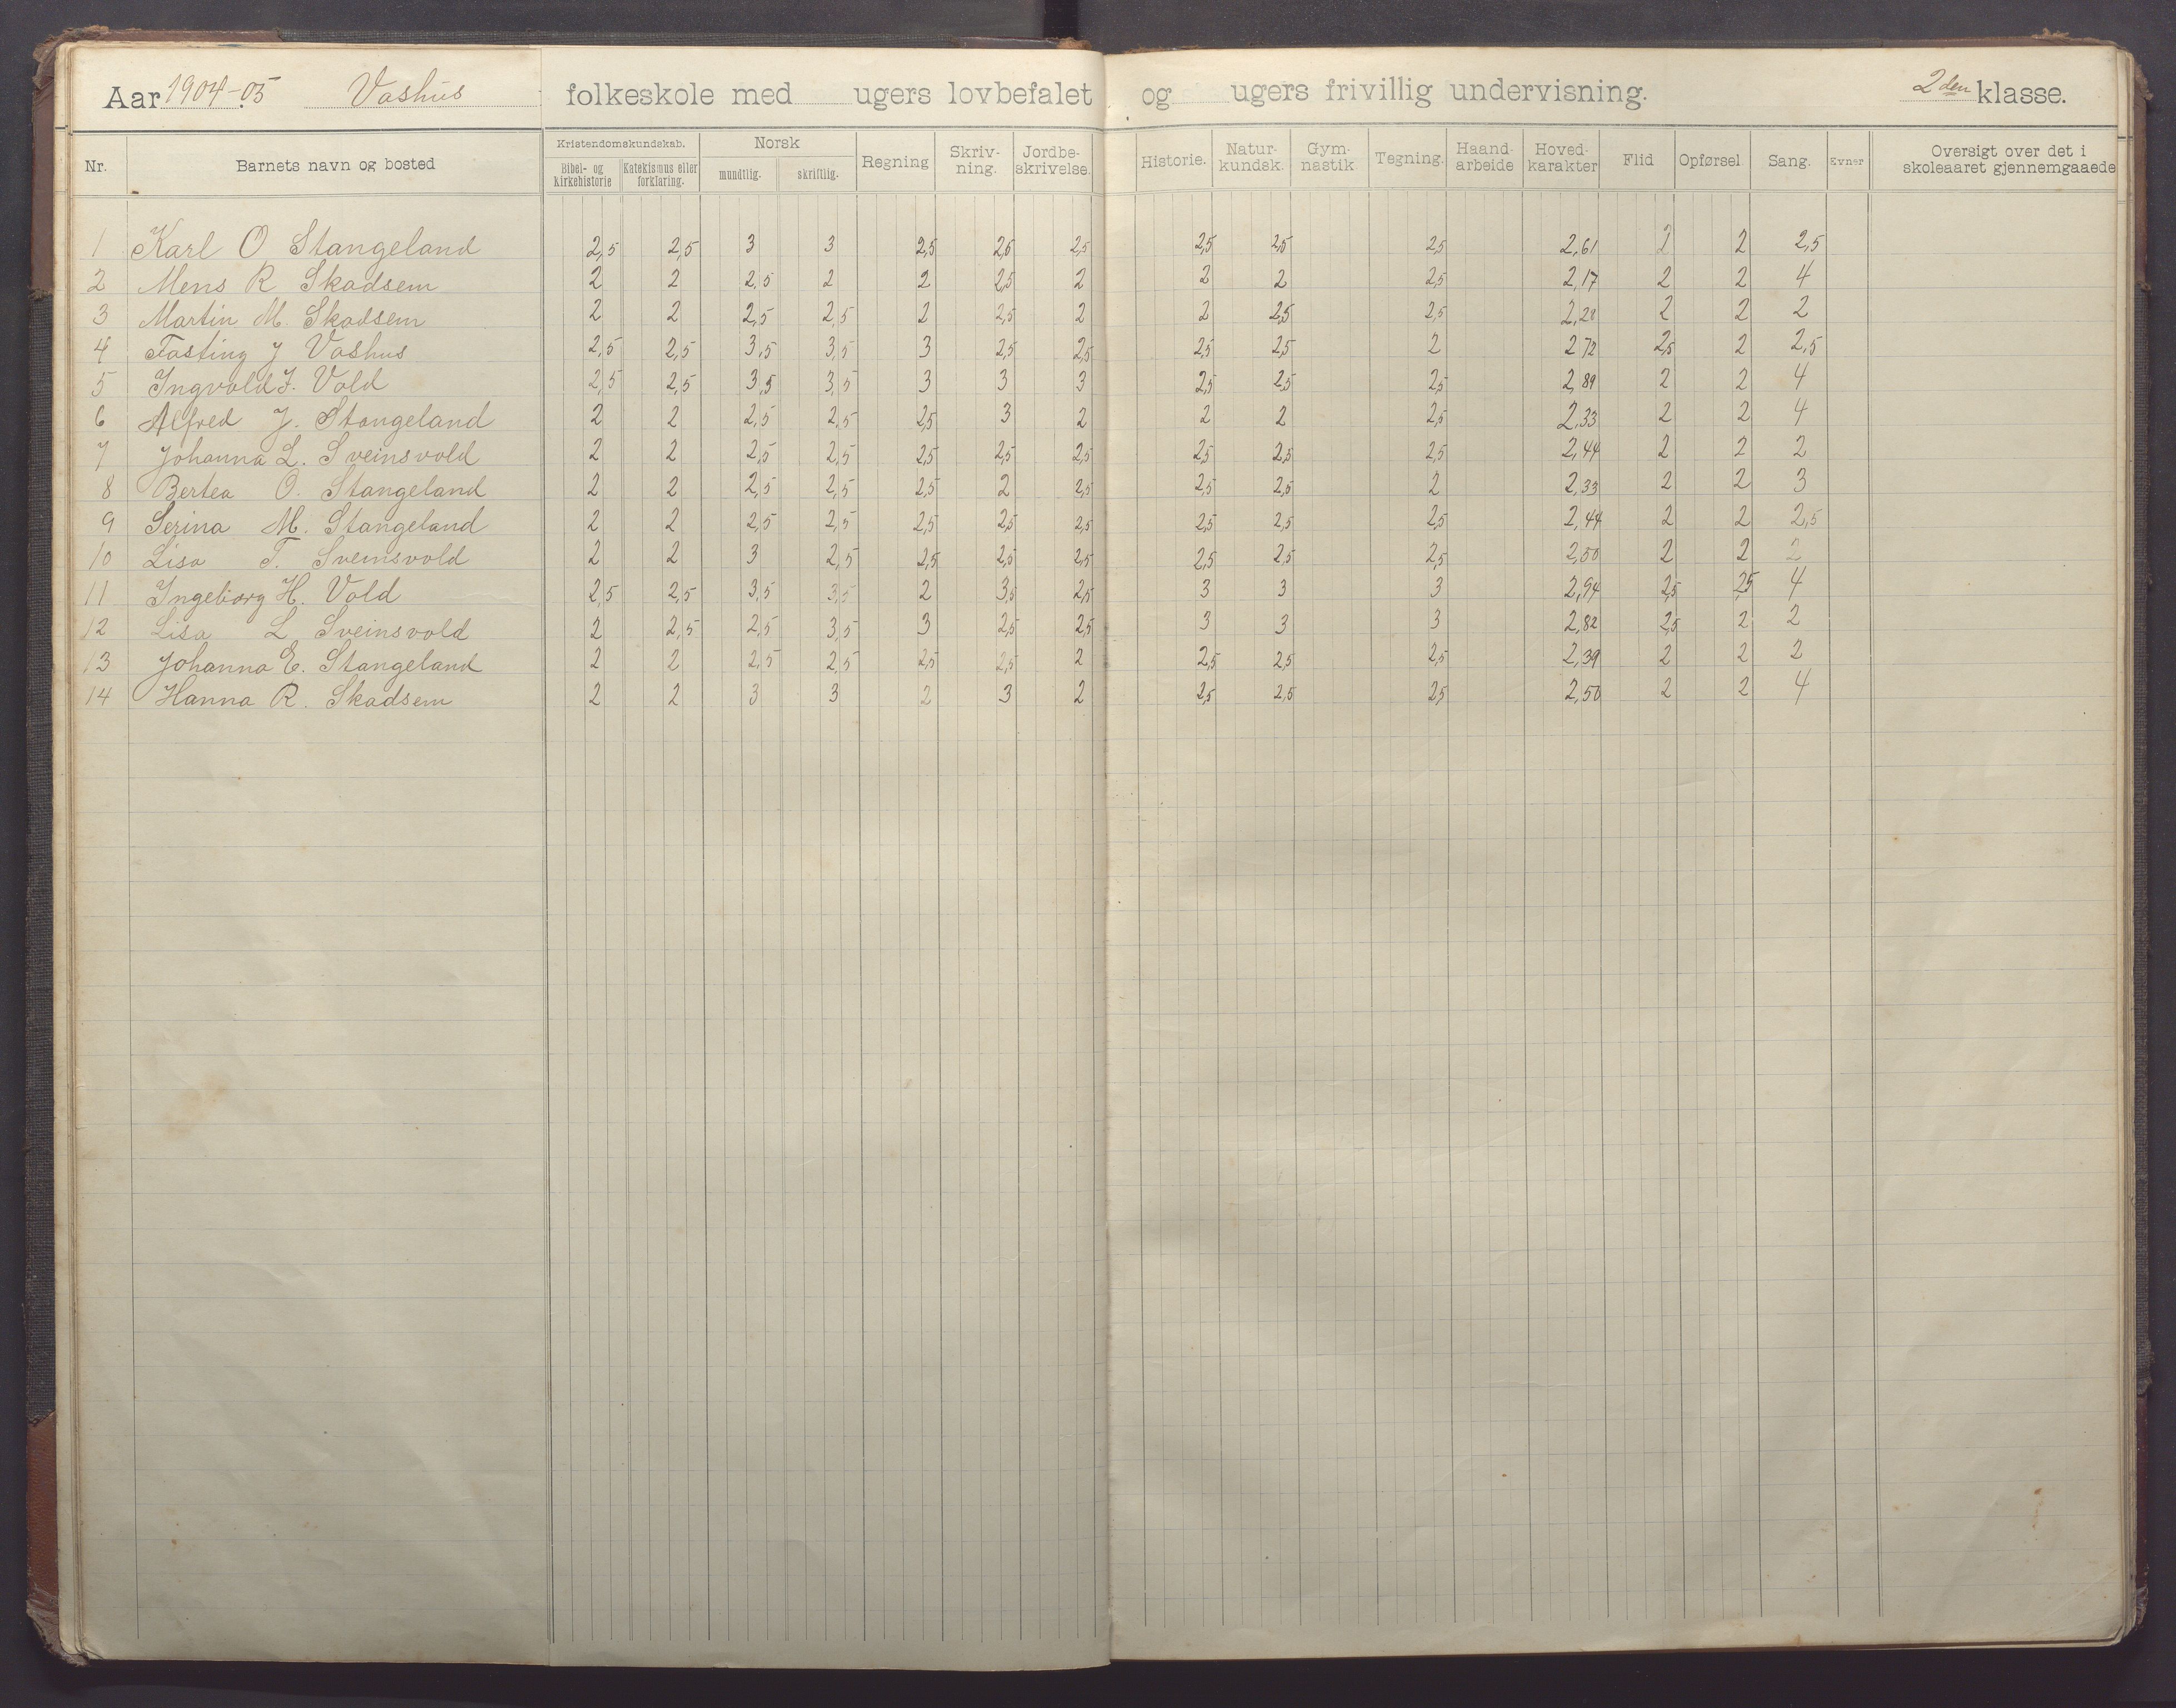 Aar 1904-05 Vashus folkeskole med ugers lovbefalet og ugers frivillig undervisning. 2den klasse.
Nr. Barnets navn og bosted Kristendomskundskab. Bibel- og Kirkehistorie Katekismus eller forklaring. Norsk mundtlig. skriftlig. Regning Skriv-ning. Jordbe-skrivelse. Historie. Natur-kundsk. Gym-nastik Tegning. Haand-arbeide Hoved-karakter Flid Opførsel Sang. Evner Oversigt over det i skoleaaret gjennemgaaede
1 Karl O Stangeland 2,5 2,5 3 3 2,5 2,5 2,5 2,5 2,5 2,5 2,61 2 2 2,5
2 Mens R Skadsem 2 2 2,5 2 2 2,5 2 2 2 2,5 2,17 2 2 4
3 Martin M. Skadsem 2 2 2,5 2,5 2 2,5 2 2 2,5 2,5 2,22 2 2 2
4 Fasting J Vashus 2,5 2,5 3,5 3,5 3 2,5 2,5 2,5 2,5 2 2 72 2,5 2 2,5
5 Ingvald J. Vold 2,5 2,5 3,5 3,5 3 3 3 2,5 2,5 2,5 2,89 2 2 4
6 Alfred J. Stangeland 2 2 2,5 2,5 2,5 3 2 2 2 2,5 2,33 2 2 4
7 Johanna L. Sveinsvold 2 2 2,5 2,5 2,5 2,5 2,5 2,5 2,5 2,5 2,44 2 2 2
8 Bertea O. Stangeland 2 2 2,5 2,5 2,5 2 2,5 2,5 2,5 2 2,33 2 2 3
9 Serina M. Stangeland 2 2 2,5 2,5 2,5 2,5 2,5 2,5 2,5 2,5 2,44 2 2 2,5
10 Lisa T. Sveinsvold 2 2 3 2,5 2,5 2,5 2,5 2,5 2,5 2,5 2,50 2 2 2
11 Ingeborg H. Vold 2,5 2,5 3,5 3,5 2 3,5 2,5 3 3 3 2,94 2,5 2,5 4
12 Lisa L Sveinsvold 2 2,5 2,5 3,5 3 2,5 2,5 3 3 3 2,82 2,5 2 2
13 Johanna E. Stangeland 2 2 2,5 2,5 2,5 2,5 2 2,5 2,5 2,5 2,39 2 2 2
14 Hanna R. Skadsem 2 2 3 3 2 3 2 2,5 2,5 2,5 2,50 2 2 4